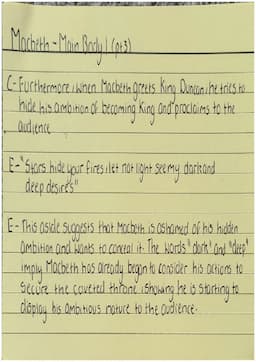 Macbeth - Main Body 1 (pt3)
C- Furthermore, when Macbeth greets King Duncan, he tries to
hide his ambition of becoming King and proclaims to the
audience
E- "Stars hide your fires, let not light see my dark and
deep desires"
E- This aside suggests that Macbeth is ashamed of his hidden
ambition and wants to conceal it. The words "dark" and "deep"
imply Macbeth has already began to consider his actions to
secure the coveted throne, showing he is starting to
display his ambitious nature to the audience.